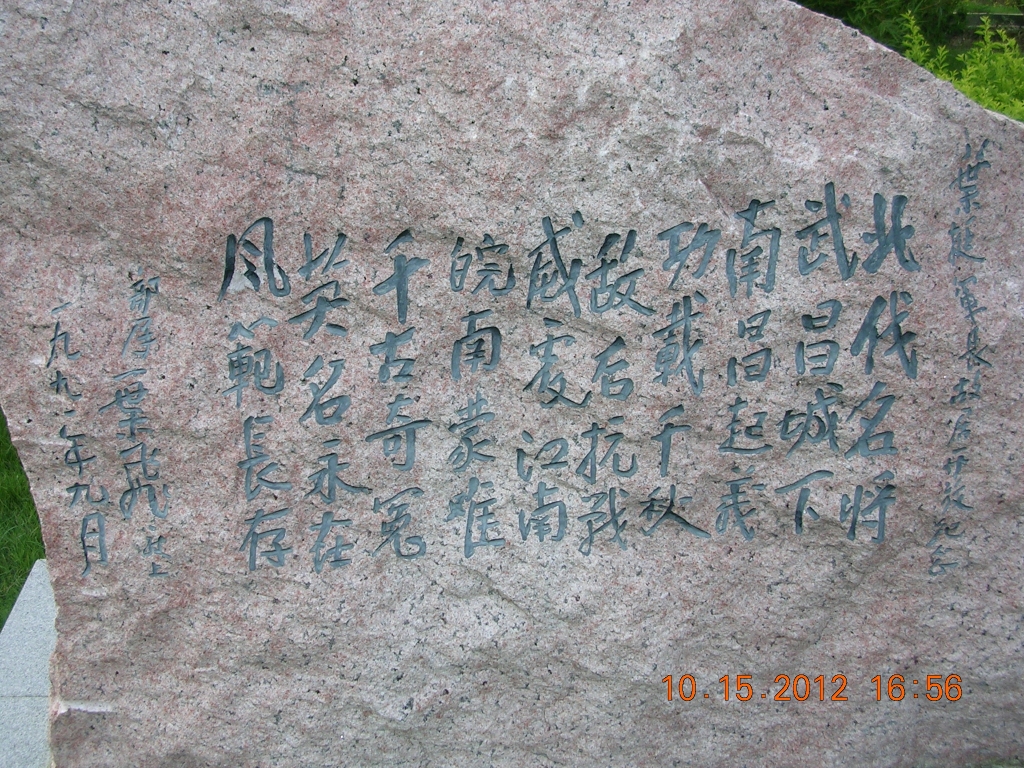 葉挺軍長故居开放纪念
北伐名将
武昌城下
南昌起義
功載千秋
敌后抗战
威震江南
皖南蒙难
千古奇冤
英名永在
風範長存
部属葉飞敬上
一九九一年九月
10.15.2012 16:56